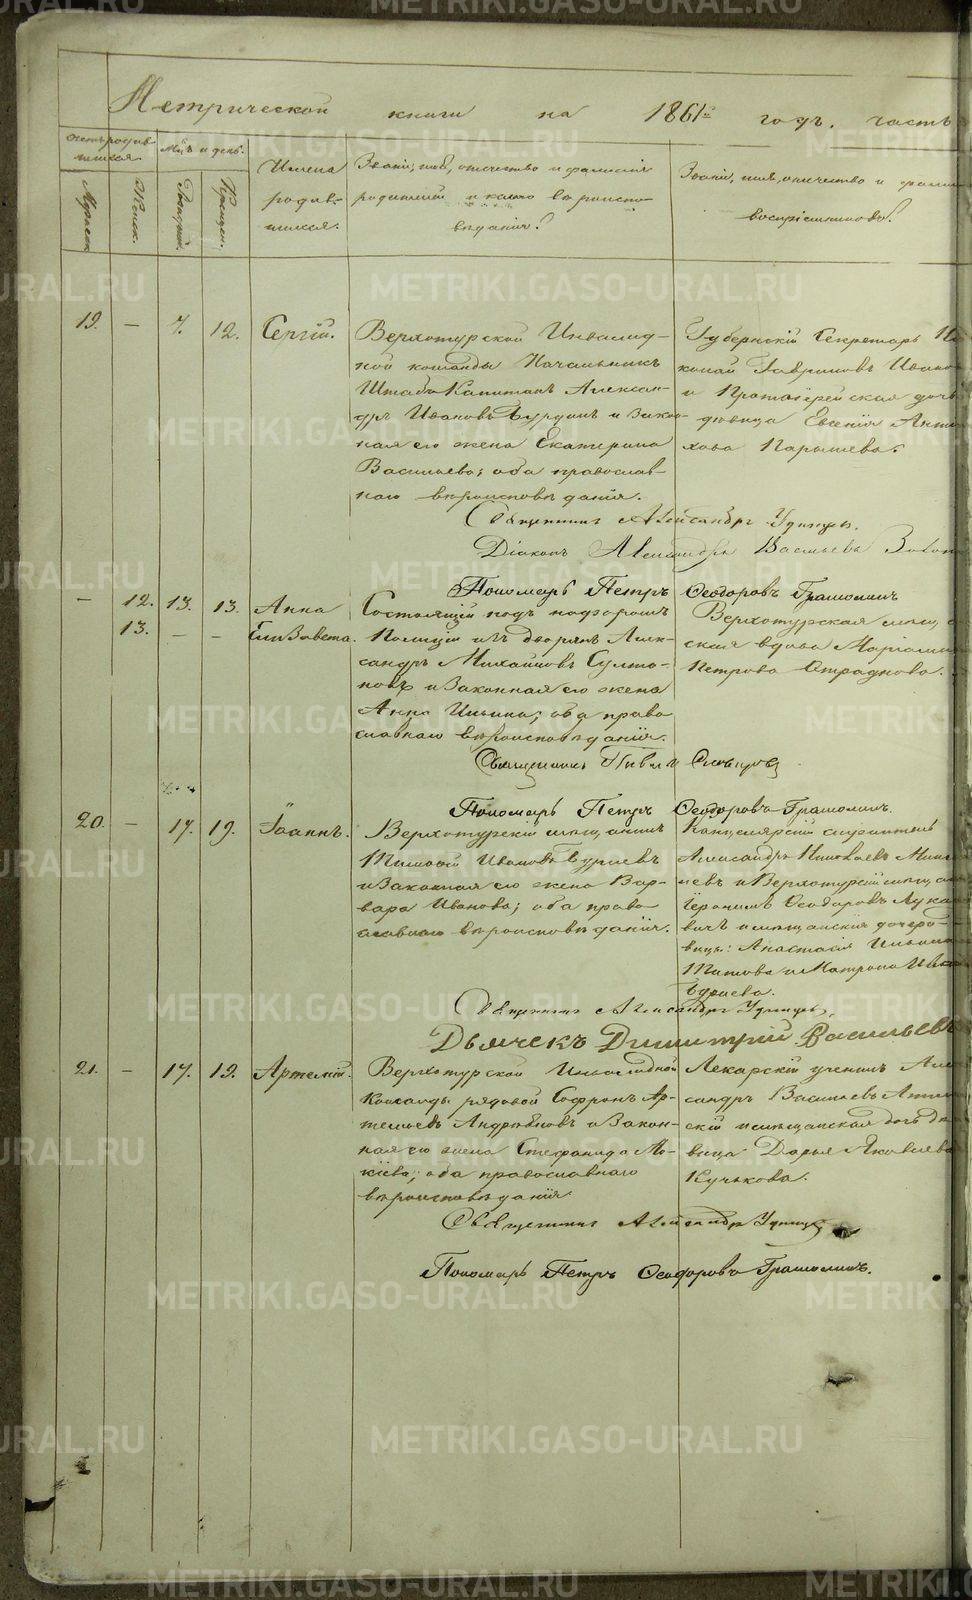 Метрической книги на 1861й годъ, часть
Счетъ родив-
шихся.
Мѣс. и день.
Мужеск.
Женск.
Рожден.
Крещен.
Имена
родив-
шихся.
Званіе, имя, отчество и фамилія
родителей и какого вѣроиспо-
вѣданія?
Званіе, имя, отчество и фами
воспріемниковъ?
19. — 7. 12. Сергій.
Верхотурской Инвалид-
ной команды Начальникъ
Штабсъ Капитанъ Алексан-
дръ Ивановъ Бурдинъ и закон-
ная его жена Екатерина
Васильева; оба православ-
наго вѣроисповѣданія.
Губернскій Секретарь Ни
колай Гавриловъ Ивано
и Протоіерейская дочь
дѣвица Евгенія
Парышева.
Священникъ Александръ Удинцевъ.
Діаконъ Александръ Васильевъ
Пономарь Петръ Ѳеодоровъ Грамолинъ
— 12. 13. 13. Анна
13. — — Елизавета.
Состоящій подъ надзоромъ
Полиціи изъ дворянъ Алек-
сандръ Михайловъ Султа-
новъ и законная его жена
Анна Ильина; оба право
славнаго вѣроисповѣданія.
Верхотурская мѣщан
ская вдова
Петрова Страднова.
Священникъ
Пономарь Петръ Ѳеодоровъ Грамолинъ.
20. — 17. 19. Іоаннъ.
Верхотурскій мѣщанинъ
Тимофей Ивановъ Бурлевъ
и законная его жена Вар-
вара Иванова; оба право
славнаго вѣроисповѣданія.
Канцелярскій служитель
Александръ Николаевъ
и Верхотурскій мѣщан
Іеронимъ Ѳеодоровъ Лука
вичъ и мѣщанскія дочери
вицы: Анастасія Ильина
Титова и Матрона
Священникъ Александръ Удинцевъ.
Дьячекъ Димитрій Васильевъ
21. — 17. 19. Артемій.
Верхотурской Инвалидной
команды рядовой Софронъ Ар-
темьевъ Андреяновъ и закон-
ная его жена Стефанида Мо-
кіева; оба православнаго
вѣроисповѣданія.
Лекарскій ученикъ Алек
сандръ Васильевъ
скій и мѣщанская дочь дѣ
вица Дарья Яковлева
Кучькова.
Священникъ Александръ Удинцевъ
Пономарь Петръ Ѳеодоровъ Грамолинъ.
METRIKI.GASO-URAL.RU